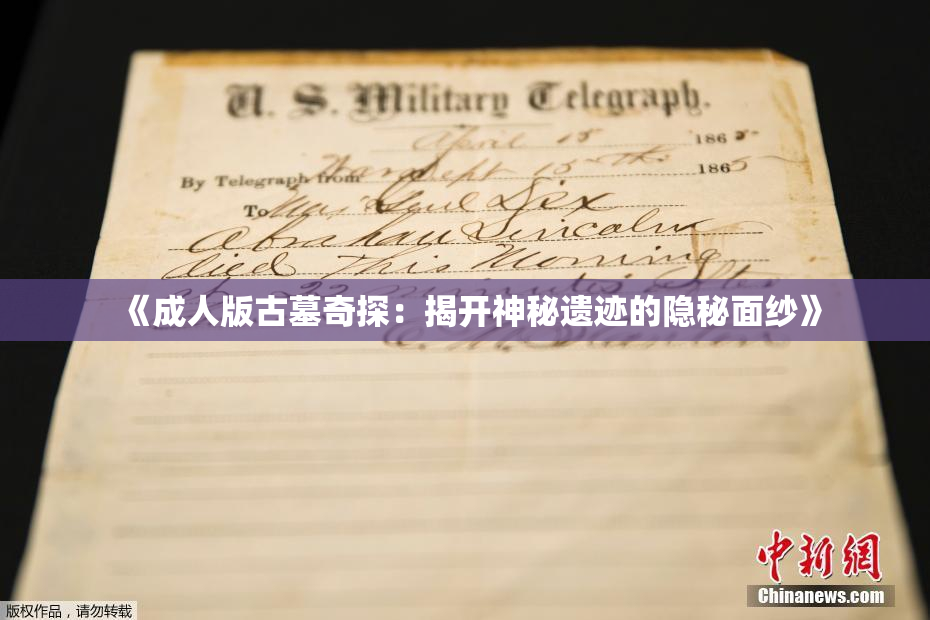 U. S. Military Telegraph.
April 15 1865
By Telegraph from War Dept 15th 1865
To Maj Genl Dix
Abraham Lincoln
died This Morning
at 22 minutes after
《成人版古墓奇探：揭开神秘遗迹的隐秘面纱》
中新網
Chinanews.com
版权作品，请勿转载